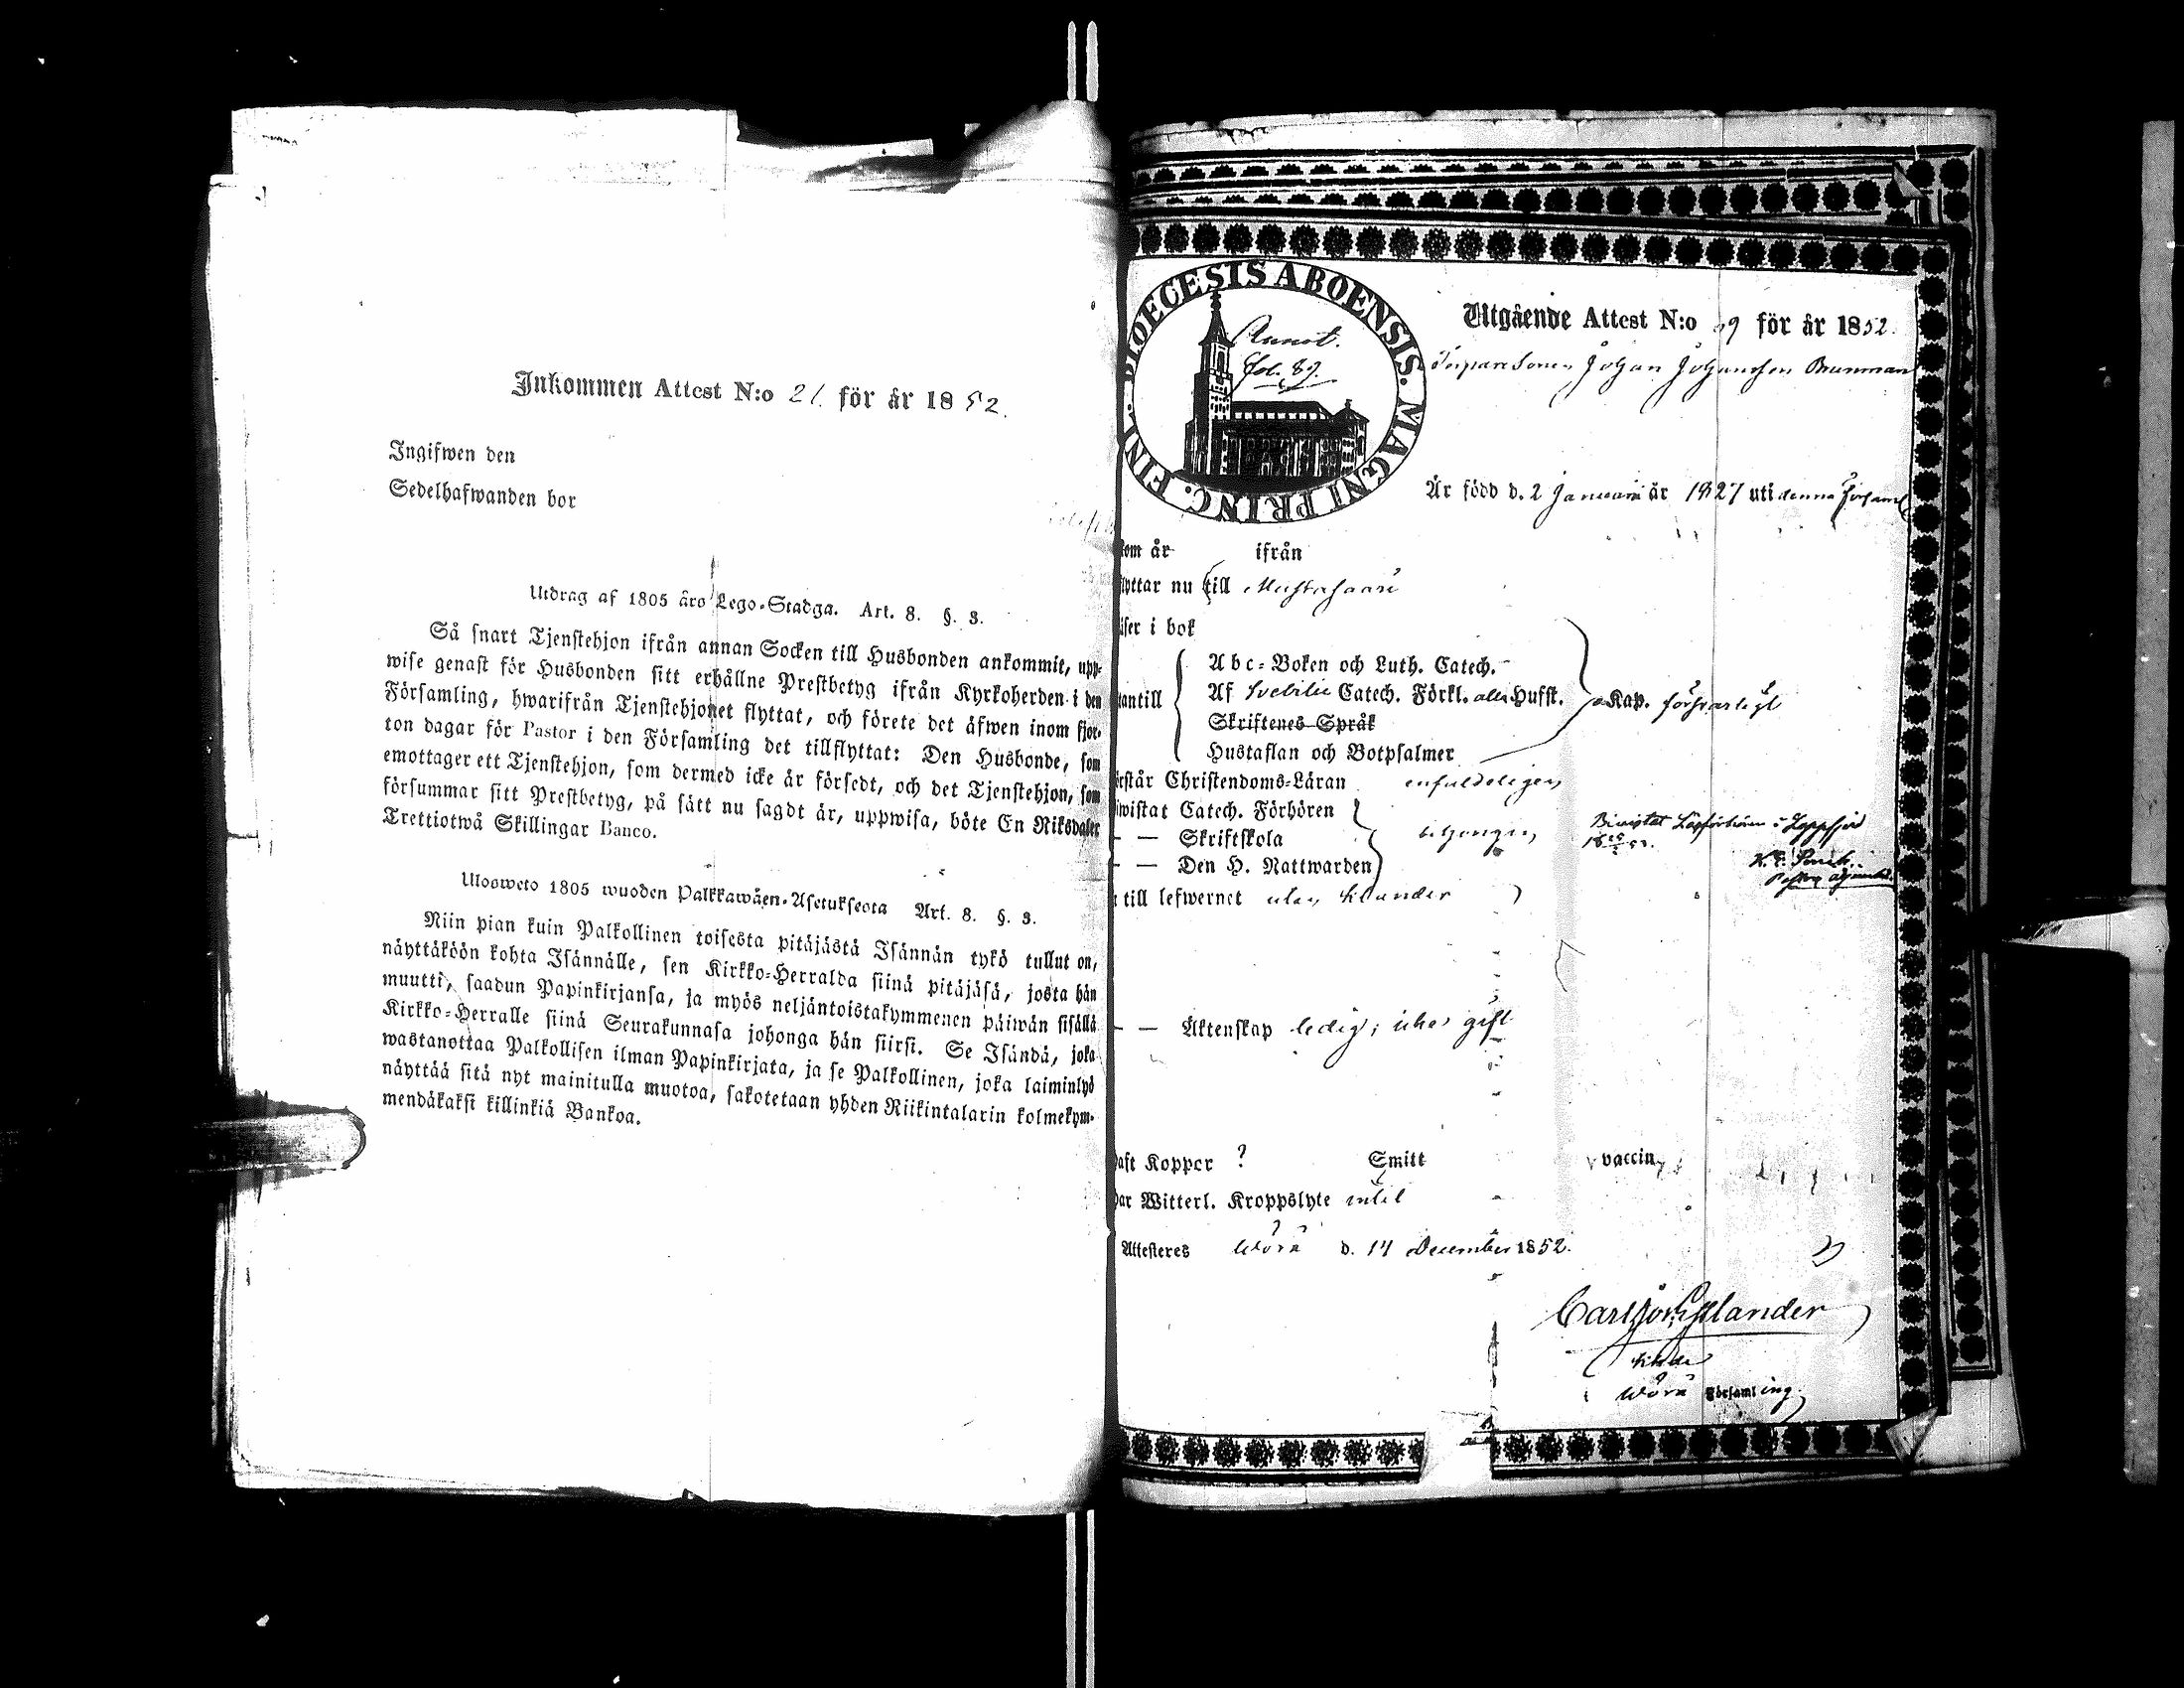 Inkommen Attest N:o 21. för år 1852.
Ingifwen den
Sedelhafwanden bor
Utdrag af 1805 års Lego-Stadga. Art. 8. §. 3.
Så snart Tjenstehjon ifrån annan Socken till Husbonden ankommit, upp-
wise genast för Husbonden sitt erhållne Prestbetyg ifrån Kyrkoherden i den
Församling, hwarifrån Tjenstehjonet flyttat, och förete det äfwen inom fjor-
ton dagar för Pastor i den Församling det tillflyttat: Den Husbonde, som
emottager ett Tjenstehjon, som dermed icke är försedt, och det Tjenstehjon, som
försummar sitt Prestbetyg, på sätt nu sagdt är, uppwisa, böte En Riksdaler
Trettiotwå Skillingar Banco.
Ulosweto 1805 wuoden Palkkawäen-Asetuksesta Art. 8. §. 3.
Niin pian kuin Palkollinen toisesta pitäjästä Isännän tykö tullut on,
näyttäköön kohta Isännälle, sen Kirkko-Herralda siinä pitäjäsä, josta hän
muutti, saadun Papinkirjansa, ja myös neljäntoistakymmenen päiwän sisällä
Kirkko-Herralle siinä Seurakunnasa johonga hän siirsi. Se Isändä, joka
wastanottaa Palkollisen ilman Papinkirjata, ja se Palkollinen, joka laiminlyö
näyttää sitä nyt mainitulla muotoa, sakotetaan yhden Riikintalarin kolmekym-
mendäkaksi killinkiä Bankoa.
DIOECESIS ABOENSIS. MAGNI PRINC. FINL.
Annot.
fol. 89.
Utgående Attest N:o 29 för år 1852.
Johan Johansson Brunman
Är född d. 2 Januarii år 1827 uti denna Församl
kom år ifrån
flyttar nu till Mustasaari
läser i bok
utantill
Abc-Boken och Luth. Catech.
Af Svebilii Catech. Förkl. alla Husst.
Skriftenes Språk
Hustaflan och Botpsalmer
Kap. försvarligt
förstår Christendoms-Läran enfaldeligen
biwistat Catech. Förhören
— — Skriftskola
— — Den H. Nattwarden
Biwistat Läsförhören i Koppfjord
till lefwernet utan klander
— — Äktenskap ledig; icke gift
haft Koppor ? Smitt vaccin
har Witterl. Kroppslyte intet
Attesteres Wörå d. 14 December 1852.
Wörå Församling